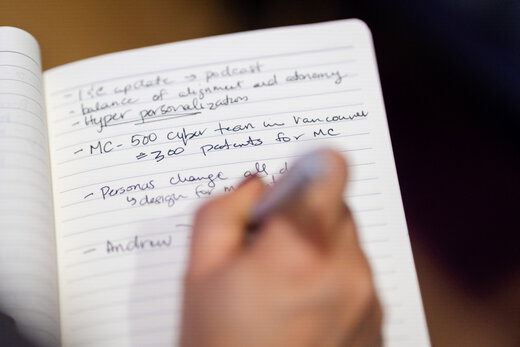 - update → podcast
- balance of alignment and autonomy
- Hyper personalization
- MC - 500 cyber team in Vancouver
300 patents for MC
- Personas change all
↳ design for
- Andrew